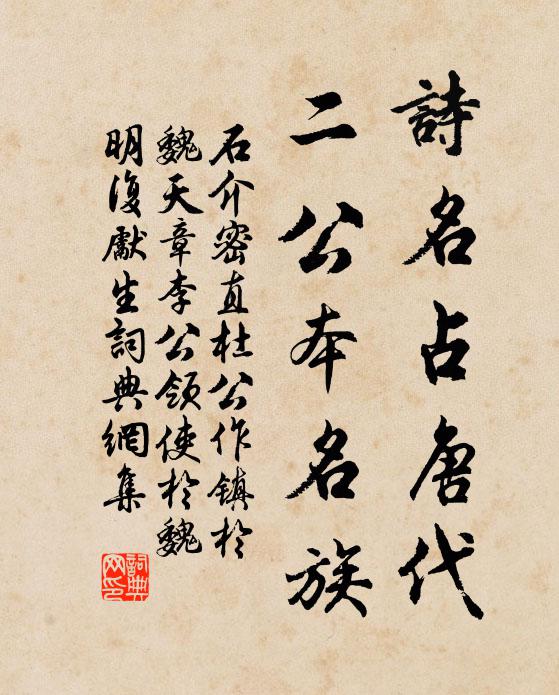 詩名占唐代
二公本名族
石介密直杜公作鎮於
魏天章李公領使於魏
明復獻生詞典網集
詞典
网印